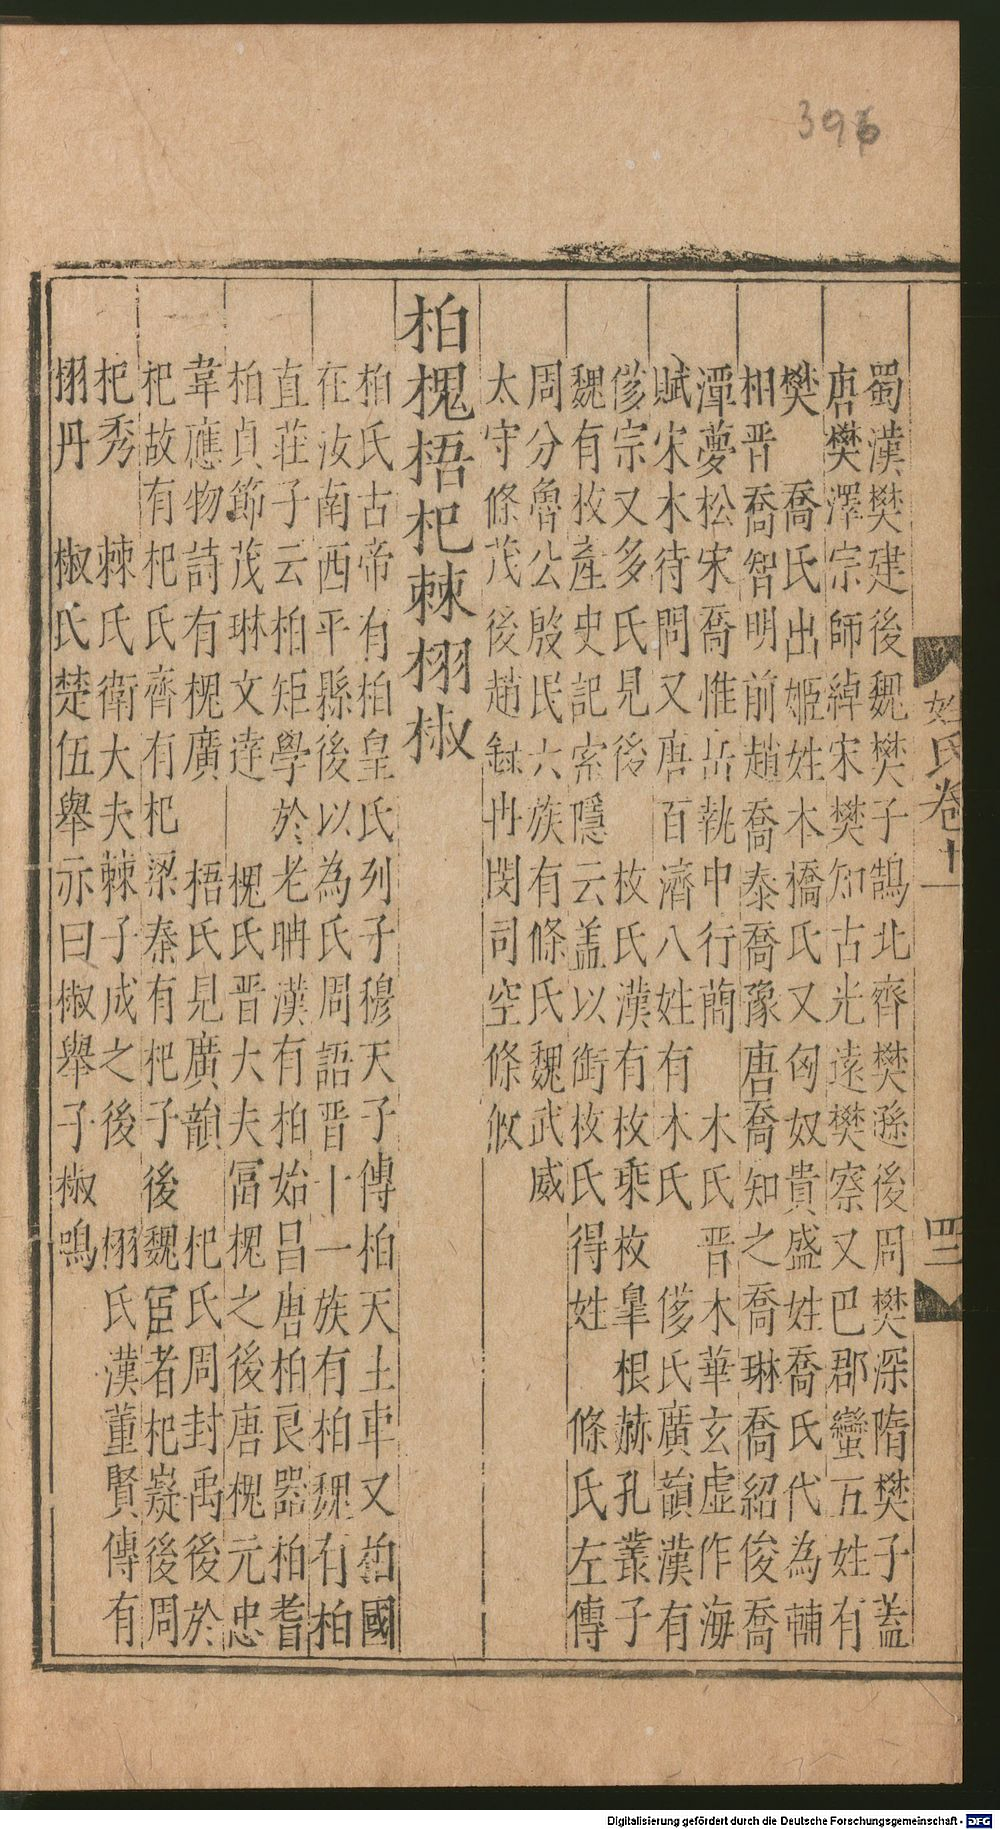 396
姓氏卷十一
四
蜀漢樊建後魏樊子鵠北齊樊遜後周樊深隋樊子蓋
唐樊澤宗師綽宋樊知古光遠樊察又巴郡蠻五姓有
樊　喬氏出姬姓本橋氏又匈奴貴盛姓喬氏代為輔
相晋喬智明前趙喬泰喬豫唐喬知之喬琳喬紹俊喬
潭夢松宋喬惟岳執中行簡　木氏晋木華玄虛作海
賦宋木待問又唐百濟八姓有木氏　侈氏廣韻漢有
侈宗又多氏見後　枚氏漢有枚乘枚皐根赫孔叢子
魏有枚產史記索隱云盖以銜枚氏得姓　條氏左傳
周分魯公殷民六族有條氏魏武威
太守條茂後趙録冉閔司空條攸
柏槐梧杞棘栩椒
柏氏古帝有柏皇氏列子穆天子傳柏天主車又柏國
在汝南西平縣後以為氏周語晋十一族有柏魏有柏
直莊子云柏矩學於老聃漢有柏始昌唐柏良器柏耆
柏貞節茂琳文逹　槐氏晋大夫冨槐之後唐槐元忠
韋應物詩有槐廣　梧氏見廣韻　杞氏周封禹後於
杞故有杞氏齊有杞梁秦有杞子後魏宦者杞嶷後周
杞秀　棘氏衛大夫棘子成之後　栩氏漢董賢傳有
栩丹　椒氏楚伍舉亦曰椒舉子椒鳴
Digitalisierung gefördert durch die Deutsche Forschungsgemeinschaft - DFG